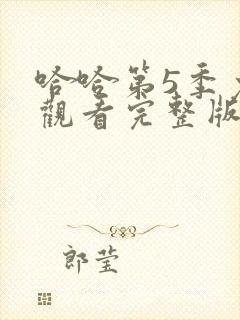 哈哈第5季
觀看完整版
郎莹